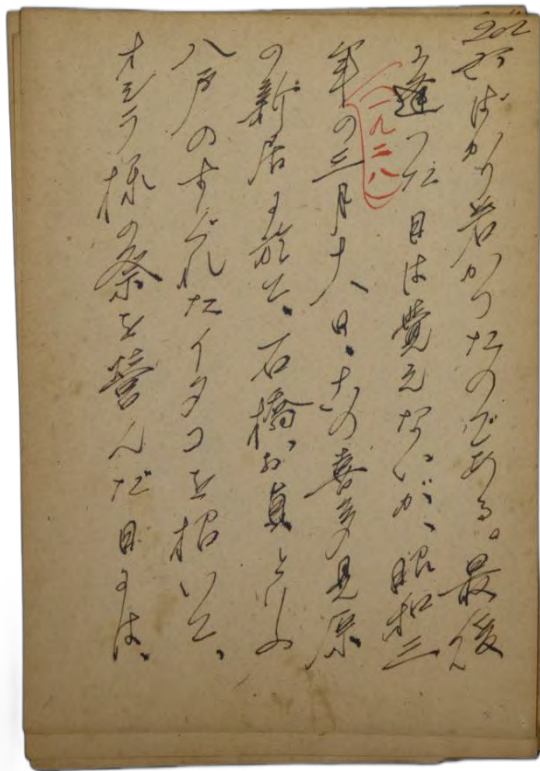 ばかり若かつたのである。最後
に逢つた日は覚えないが、昭和三
(一九二八)
年の三月十八日、この喜多見原
の新居に於て、石橋お貞といふ
八戸のすぐれたイタコを招いて、
オシラ様の祭を営んだ日には、